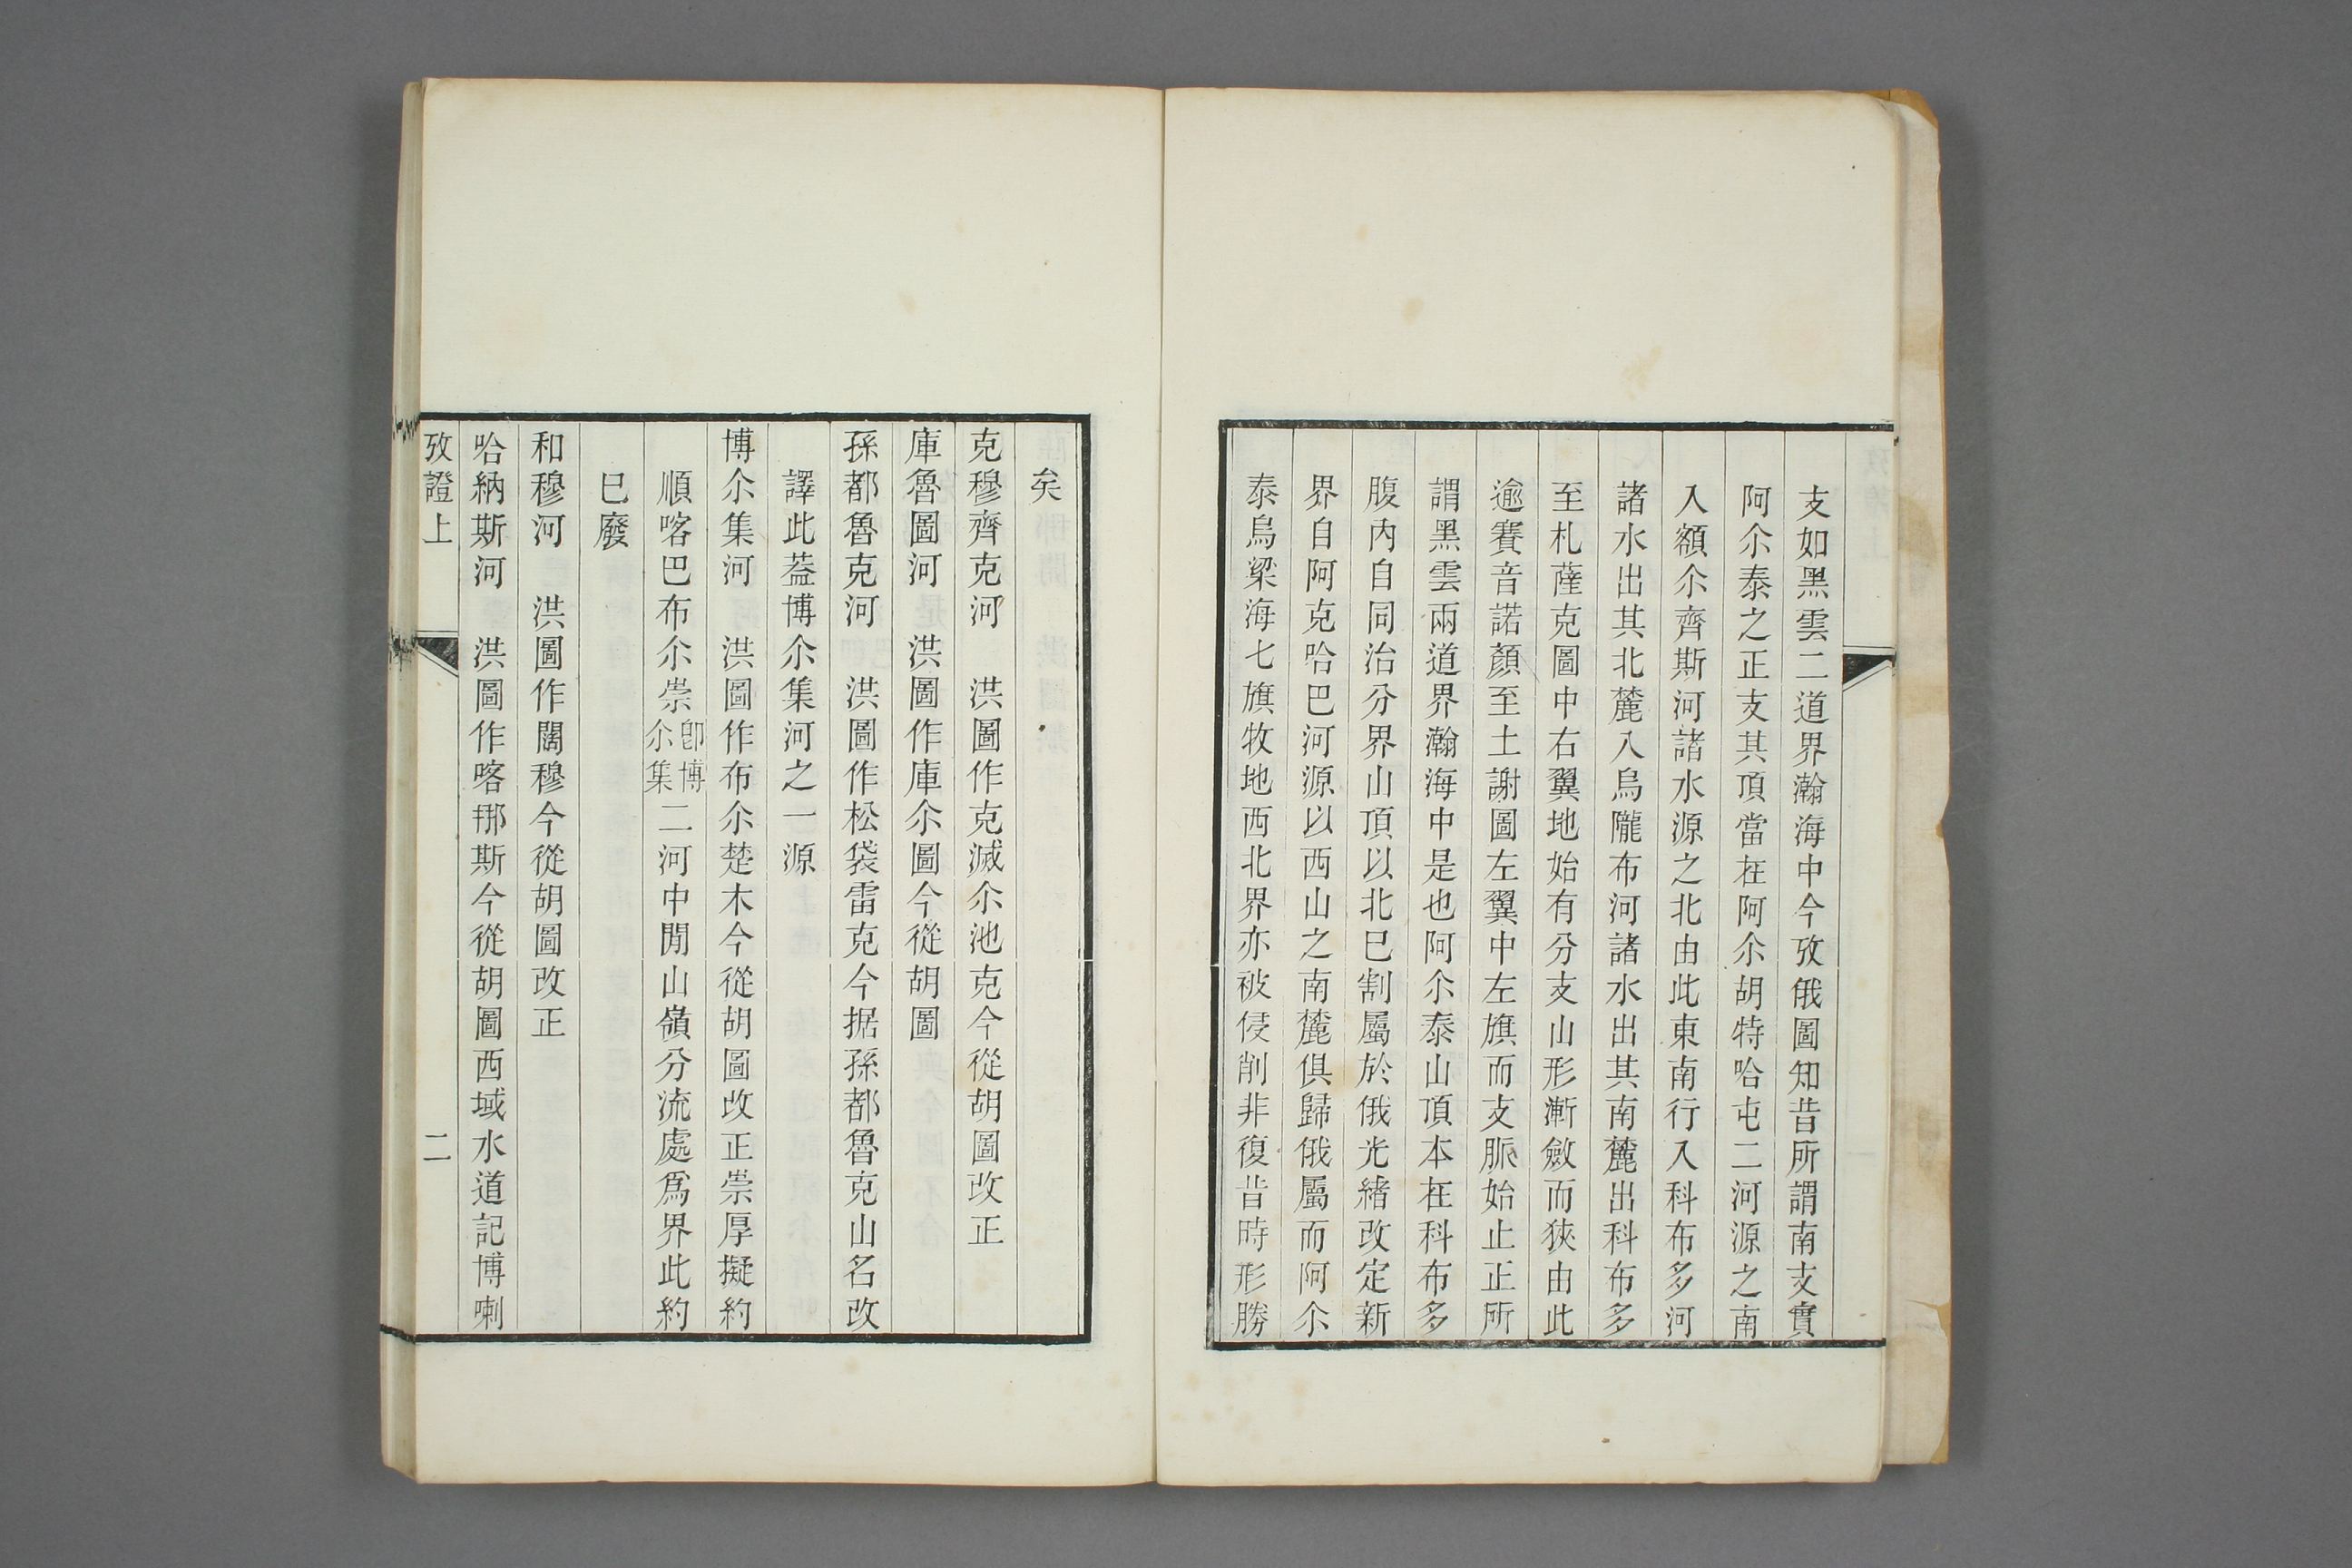 支如黑雲二道界瀚海中今攷俄圖知昔所謂南支實
阿尒泰之正支其頂當在阿尒胡特哈屯二河源之南
入額尒齊斯河諸水源之北由此東南行入科布多河
諸水出其北麓入烏隴布河諸水出其南麓出科布多
至札薩克圖中右翼地始有分支山形漸斂而狹由此
逾賽音諾顏至土謝圖左翼中左旗而支脈始止正所
謂黑雲兩道界瀚海中是也阿尒泰山頂本在科布多
腹內自同治分界山頂以北已割屬於俄光緒改定新
界自阿克哈巴河源以西山之南麓俱歸俄屬而阿尒
泰烏梁海七旗牧地西北界亦被侵削非復昔時形勝
矣
克穆齊克河　洪圖作克滅尒池克今從胡圖改正
庫魯圖河　洪圖作庫尒圖今從胡圖
孫都魯克河　洪圖作松袋雷克今据孫都魯克山名改
譯此葢博尒集河之一源
博尒集河　洪圖作布尒楚木今從胡圖改正崇厚擬約
順喀巴布尒崇卽博尒集二河中閒山嶺分流處爲界此約
已廢
和穆河　洪圖作闊穆今從胡圖改正
哈納斯河　洪圖作喀挪斯今從胡圖西域水道記博喇
攷證上　二